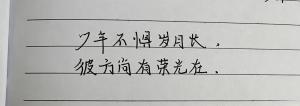 少年不惧岁月长，
彼方尚有荣光在．